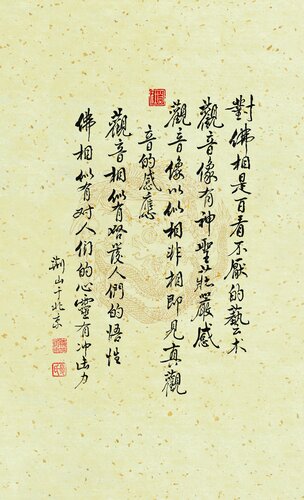 對佛相是百看不厭的藝术
觀音像有神聖莊嚴感
觀音像以似相非相即見真觀
音的感應
觀音相似有啓發人們的悟性
佛相似有对人们的心靈有冲击力
荆山于北京